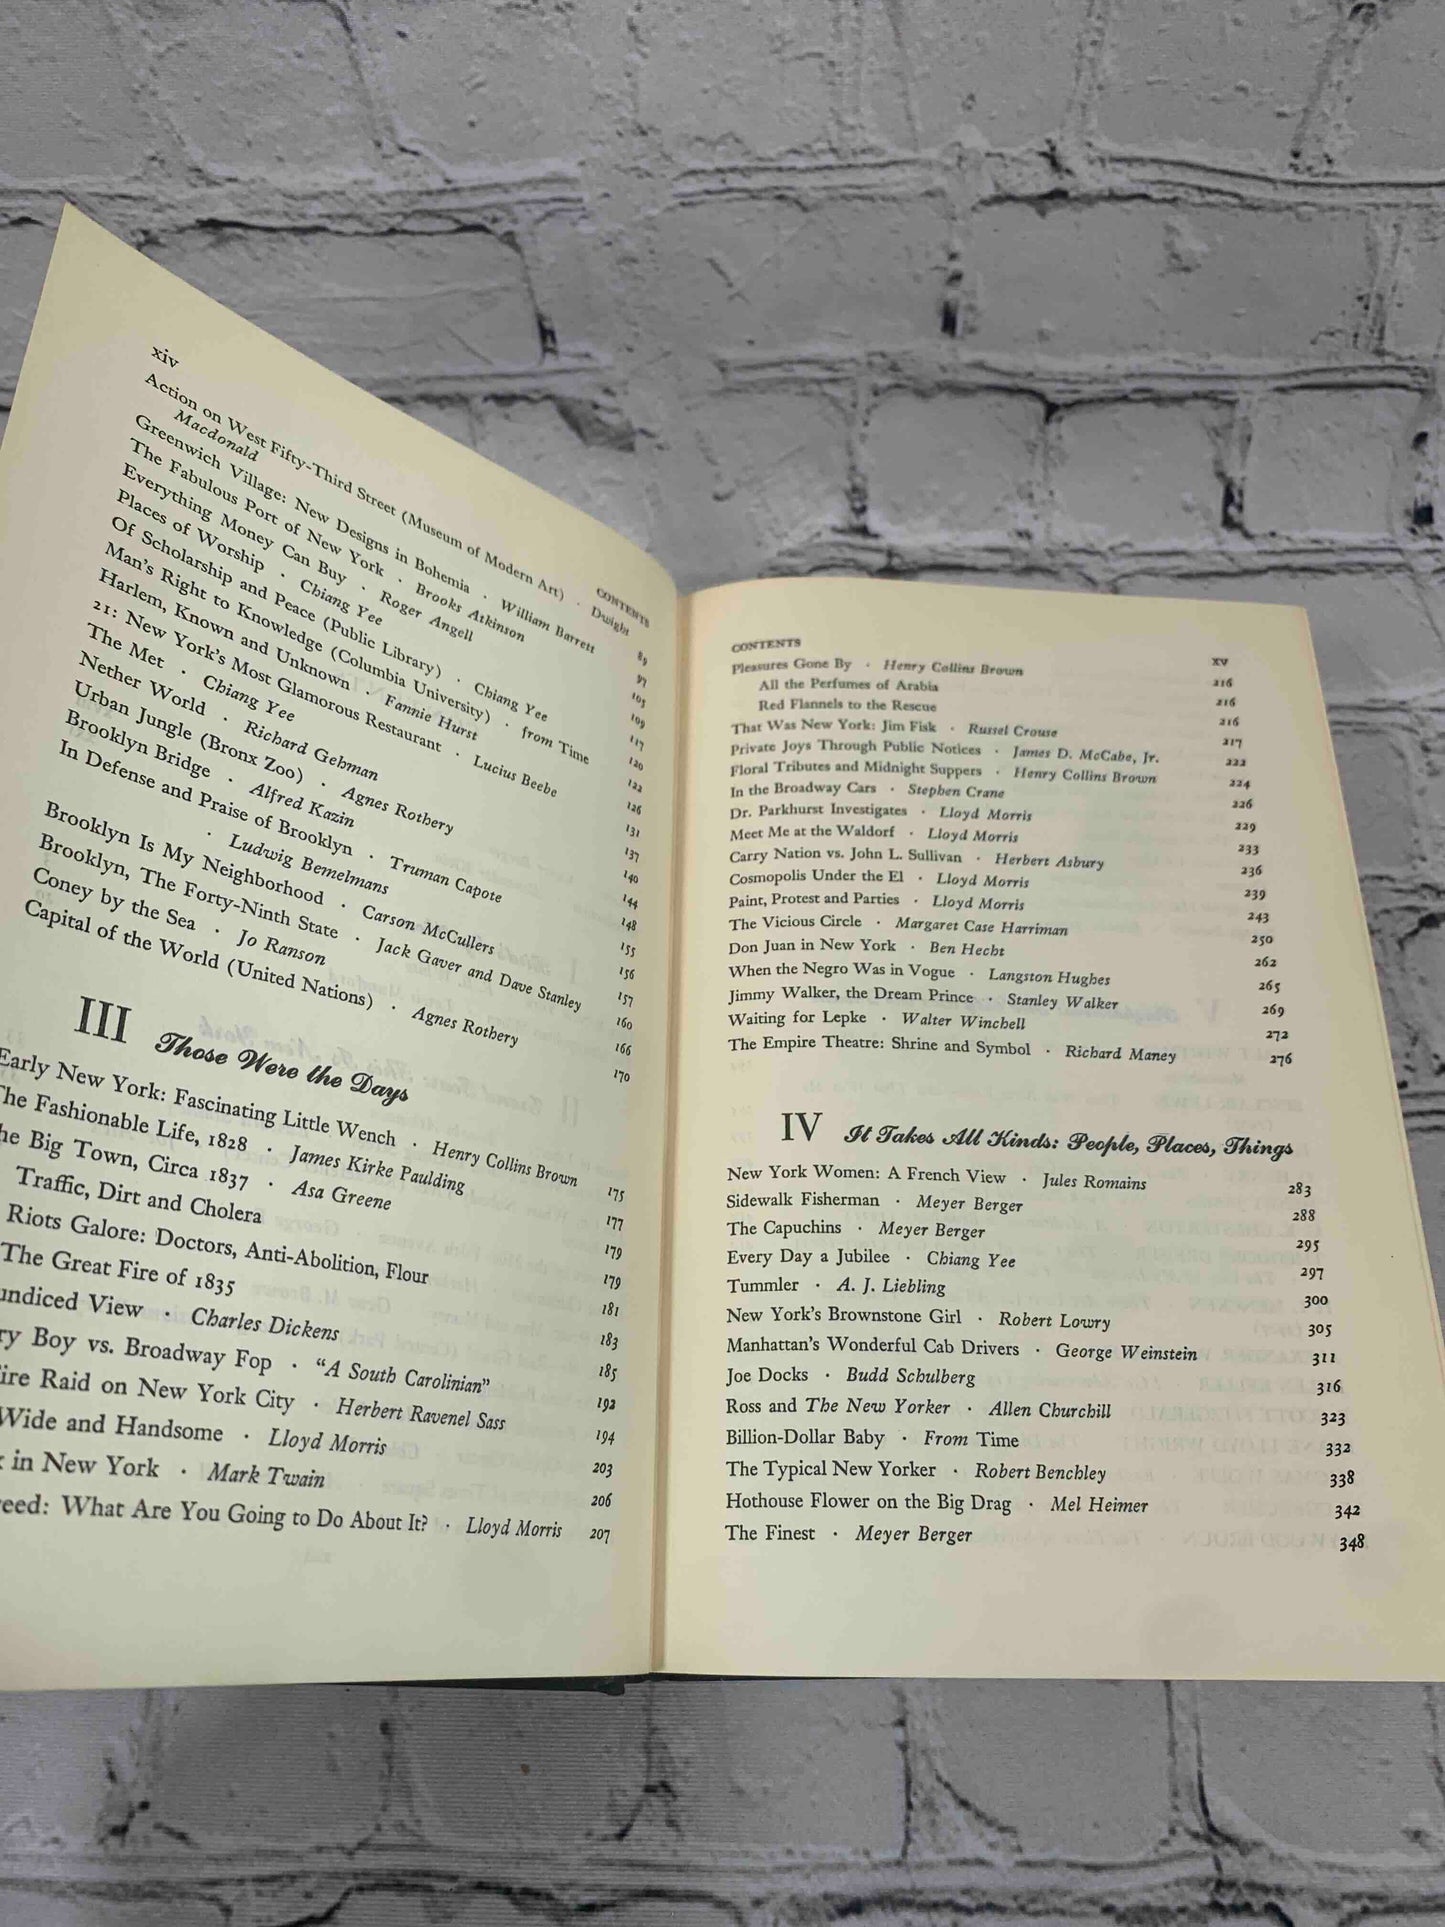 xiv
CONTENTS
Action on West Fifty-Third Street (Museum of Modern Art) · Dwight
Macdonald 89
Greenwich Village: New Designs in Bohemia · William Barrett 97
The Fabulous Port of New York · Brooks Atkinson 103
Everything Money Can Buy · Roger Angell 109
Places of Worship · Chiang Yee 117
Of Scholarship and Peace (Public Library) · Chiang Yee 120
Man's Right to Knowledge (Columbia University) · from Time 122
Harlem, Known and Unknown · Fannie Hurst 126
21: New York's Most Glamorous Restaurant · Lucius Beebe 131
The Met · Chiang Yee 137
Nether World · Richard Gehman 140
Urban Jungle (Bronx Zoo) · Agnes Rothery 144
Brooklyn Bridge · Alfred Kazin 148
In Defense and Praise of Brooklyn · Truman Capote 155
· Ludwig Bemelmans 156
Brooklyn Is My Neighborhood · Carson McCullers 157
Brooklyn, The Forty-Ninth State · Jack Gaver and Dave Stanley 160
Coney by the Sea · Jo Ranson 166
Capital of the World (United Nations) · Agnes Rothery 170
III Those Were the Days
Early New York: Fascinating Little Wench · Henry Collins Brown 175
The Fashionable Life, 1828 · James Kirke Paulding 177
he Big Town, Circa 1837 · Asa Greene 179
Traffic, Dirt and Cholera 179
Riots Galore: Doctors, Anti-Abolition, Flour 181
The Great Fire of 1835 183
undiced View · Charles Dickens 185
ry Boy vs. Broadway Fop · "A South Carolinian" 192
ire Raid on New York City · Herbert Ravenel Sass 194
Wide and Handsome · Lloyd Morris 203
in New York · Mark Twain 206
eed: What Are You Going to Do About It? · Lloyd Morris 207
CONTENTS
xv
Pleasures Gone By · Henry Collins Brown 216
All the Perfumes of Arabia 216
Red Flannels to the Rescue 216
That Was New York: Jim Fisk · Russel Crouse 217
Private Joys Through Public Notices · James D. McCabe, Jr. 222
Floral Tributes and Midnight Suppers · Henry Collins Brown 224
In the Broadway Cars · Stephen Crane 226
Dr. Parkhurst Investigates · Lloyd Morris 229
Meet Me at the Waldorf · Lloyd Morris 233
Carry Nation vs. John L. Sullivan · Herbert Asbury 236
Cosmopolis Under the El · Lloyd Morris 239
Paint, Protest and Parties · Lloyd Morris 243
The Vicious Circle · Margaret Case Harriman 250
Don Juan in New York · Ben Hecht 262
When the Negro Was in Vogue · Langston Hughes 265
Jimmy Walker, the Dream Prince · Stanley Walker 269
Waiting for Lepke · Walter Winchell 272
The Empire Theatre: Shrine and Symbol · Richard Maney 276
IV It Takes All Kinds: People, Places, Things
New York Women: A French View · Jules Romains 283
Sidewalk Fisherman · Meyer Berger 288
The Capuchins · Meyer Berger 295
Every Day a Jubilee · Chiang Yee 297
Tummler · A. J. Liebling 300
New York's Brownstone Girl · Robert Lowry 305
Manhattan's Wonderful Cab Drivers · George Weinstein 311
Joe Docks · Budd Schulberg 316
Ross and The New Yorker · Allen Churchill 323
Billion-Dollar Baby · From Time 332
The Typical New Yorker · Robert Benchley 338
Hothouse Flower on the Big Drag · Mel Heimer 342
The Finest · Meyer Berger 348